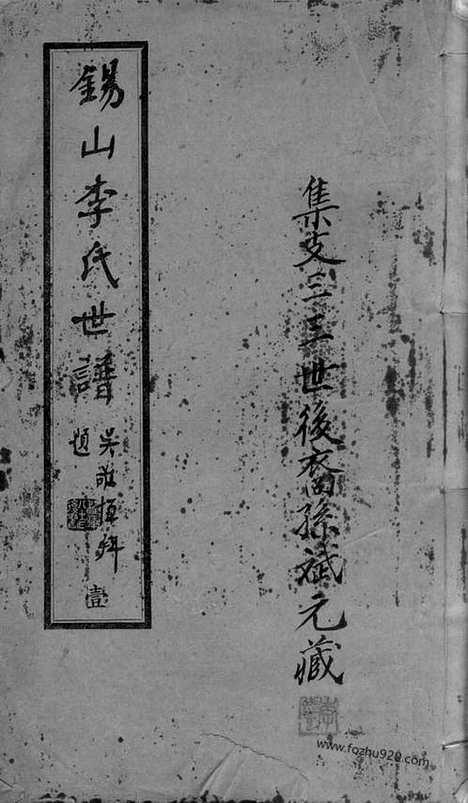 集支三三世後裔孫斌元藏
錫山李氏世譜
吳敬恆拜
題
壹
www.fozhu920.com